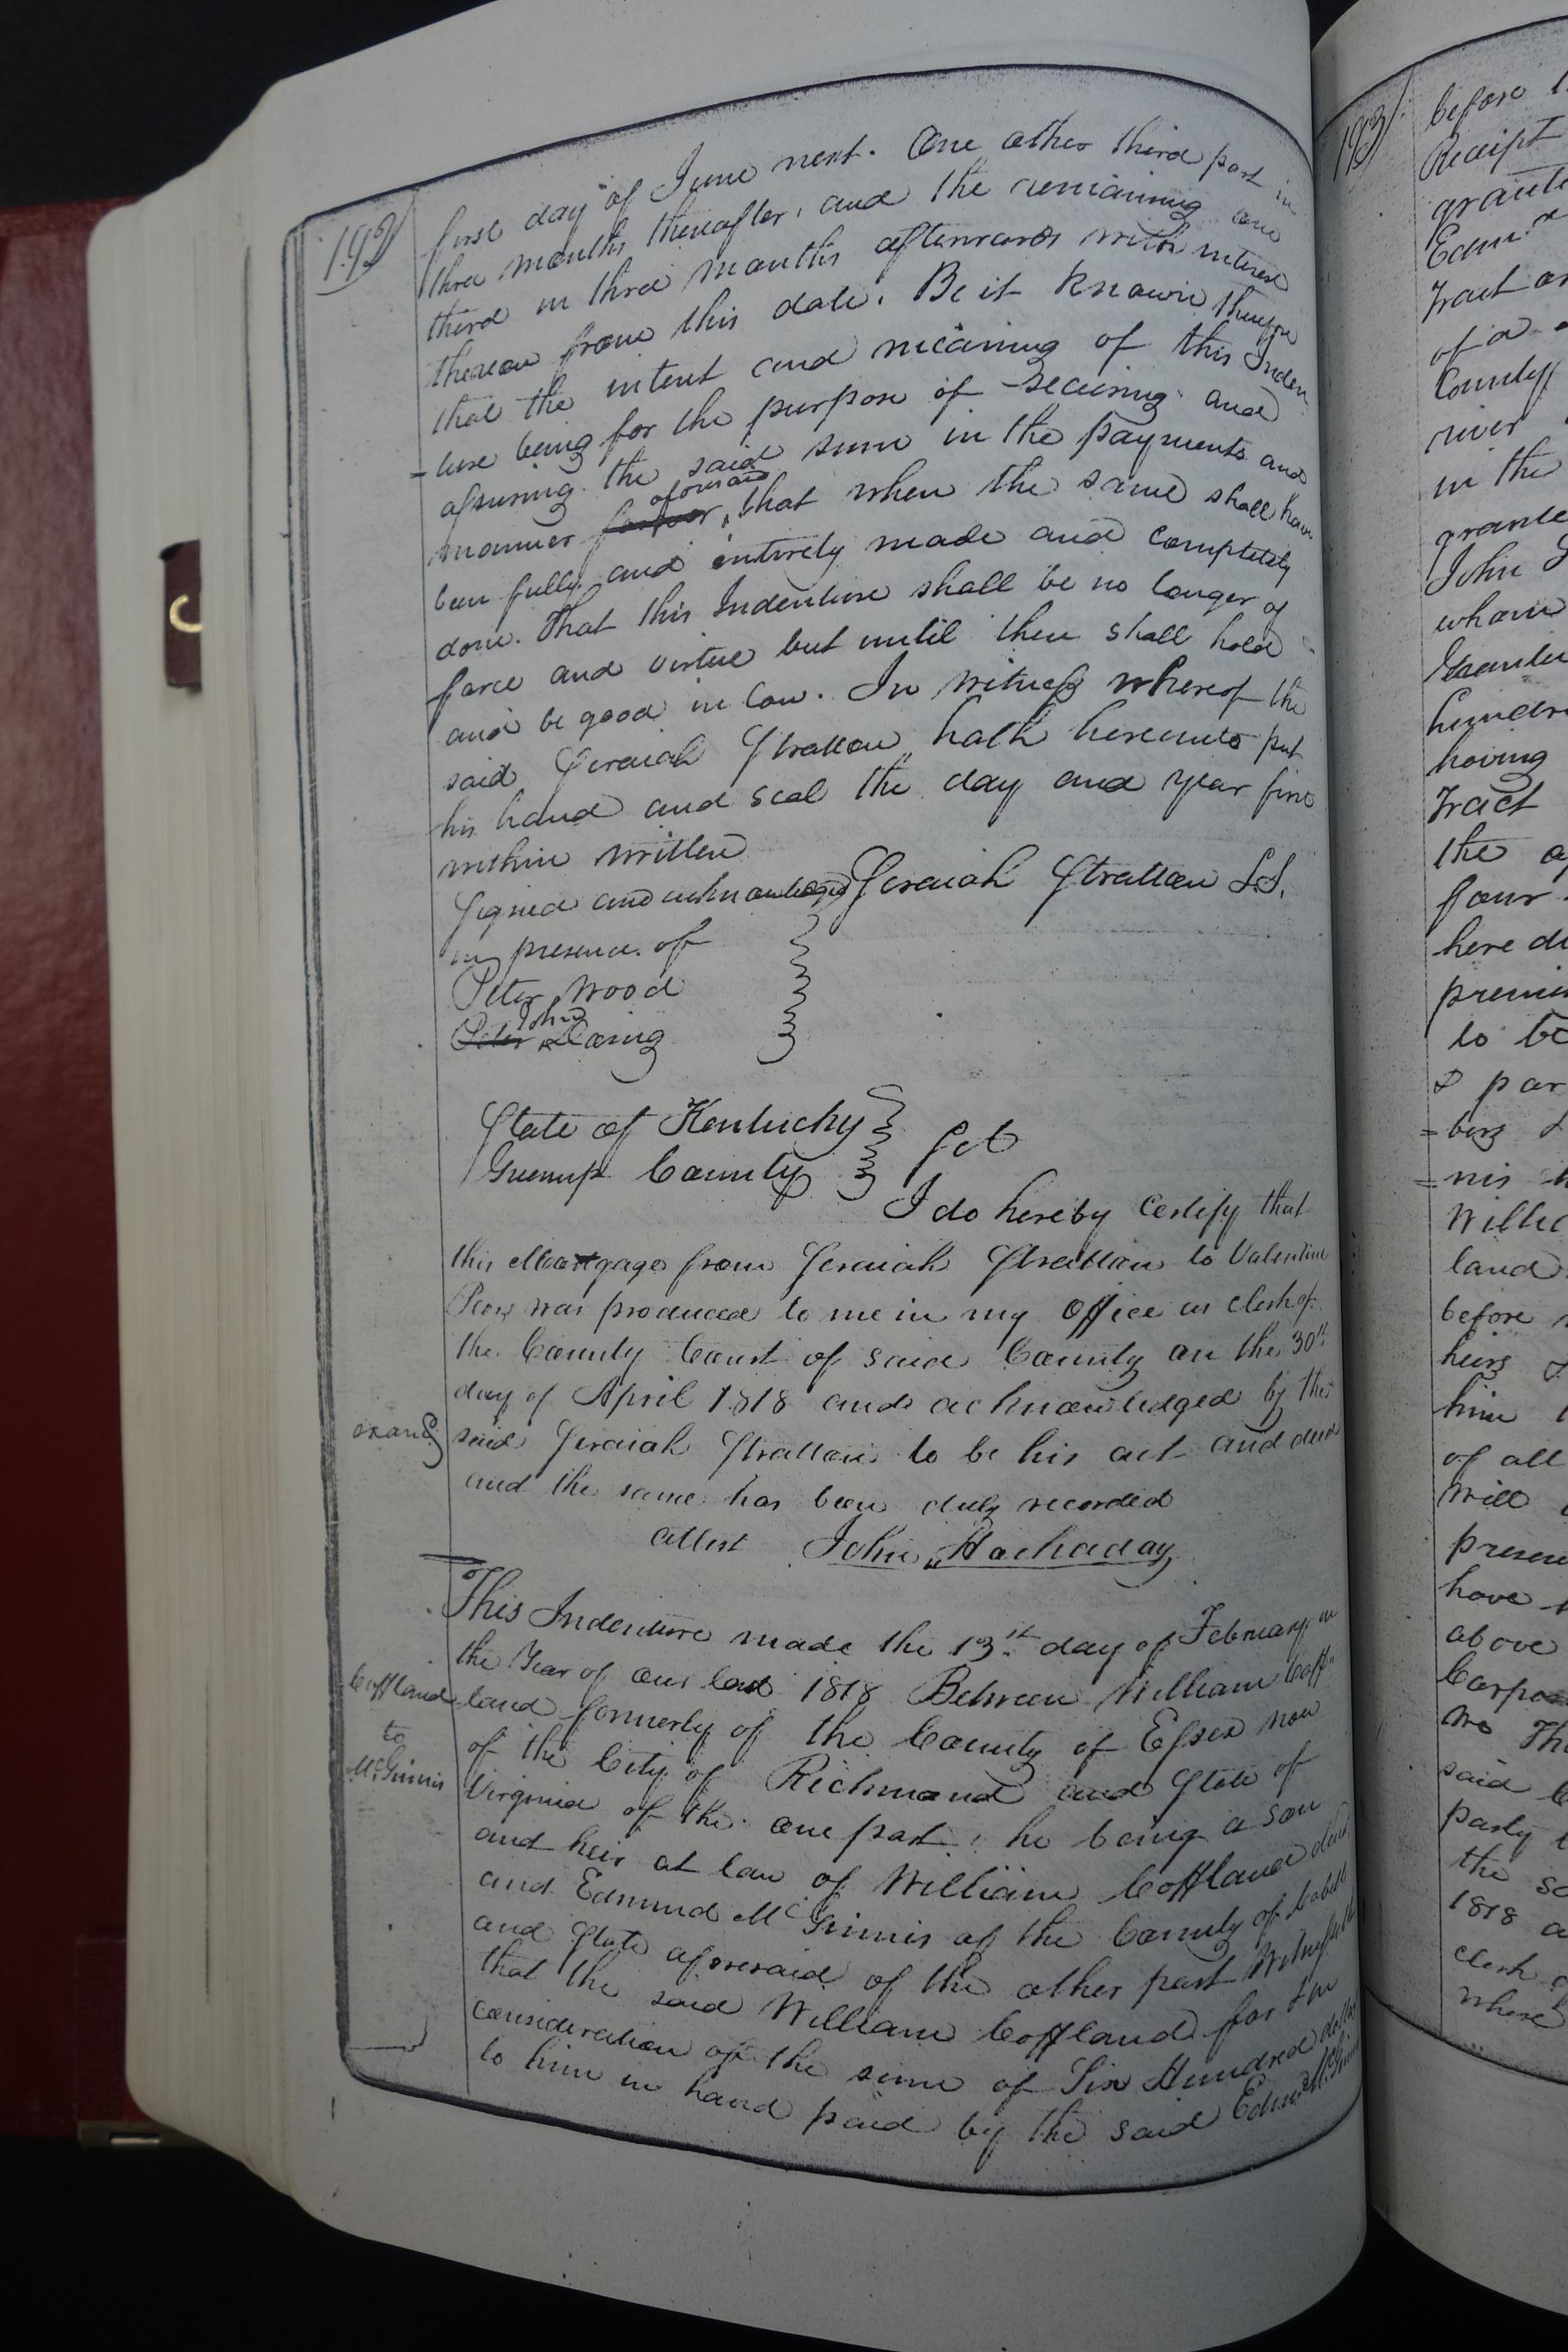 192
first day of June next. One other third part in
three months thereafter, and the remaining one
third in three months afterwards with interest
thereon from this date. Be it known therefore
that the intent and meaning of this Inden
=ture being for the purpose of securing and
assuring the said sum in the payments and
manner forever aforesaid, that when the same shall have
been fully and entirely made and completely
done. That this Indenture shall be no longer of
force and virtue but until then shall hold
and be good in law. In witness whereof the
said Seraiah Stratton hath hereunto put
his hand and seal the day and year first
within written
Signed and acknowledged Seraiah Stratton L.S.
in presence of
Peter Wood
Peter John Loring
State of Kentucky
Greenup County Sct
I do hereby certify that
this Mortgage from Seraiah Stratton to Valentine
Peors was produced to me in my Office as Clerk of
the County Court of said County on the 30th
day of April 1818 and acknowledged by the
examd
said Seraiah Stratton to be his act and deed
and the same has been duly recorded
attest John Hockaday
This Indenture made the 13th day of February in
the Year of our lord 1818 Between William Coff
Coffland
to
McGinnis
land formerly of the County of Essex now
of the City of Richmond and State of
Virginia of the one part: he being a son
and heir at law of William Coffland decd.
and Edmund McGinnis of the County of Cabell
and State aforesaid of the other part Witnesseth
that the said William Coffland for & in
consideration of the sum of Six Hundred dollars
to him in hand paid by the said Edmd McGinnis
193
before
Receipt
Tract
of a
County
river
in the
John
whom
having
Tract
the
four
here
to be
& par
=nis
land
before
heirs
him
of all
will
have
above
said
party
the
1818
Clerk
where